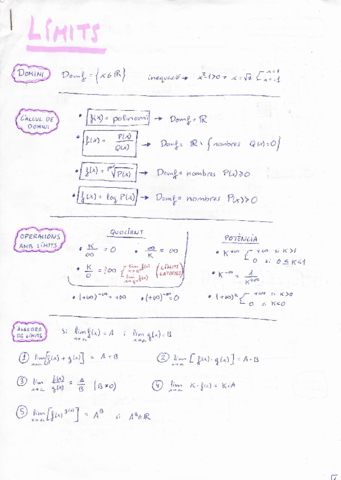 LÍMITS
DOMINI
Domf = {x∈ℝ} inequació → x²-1>0 → x=√1 [x=1 x=-1
CÀLCUL DE DOMINI
• f(x) = polinomi → Domf = ℝ
• f(x) = P(x)/Q(x) → Domf = ℝ - {nombres Q(x)=0}
• f(x) = ⁿ√P(x) → Domf = nombres P(x)≥0
• f(x) = log P(x) → Domf = nombres P(x)>0
OPERACIONS AMB LÍMITS
QUOCIENT
POTÈNCIA
• K/∞ = 0 • ∞/K = ∞
• K/0 = ±∞ (LÍMITS LATERALS)
• (+∞)^-∞ = +∞ • (+∞)^-∞ = 0
• K^+∞ { +∞ si K>1 0 si 0≤K<1
• K^-∞ = 1/K^+∞
• (+∞)^K { +∞ si K>0 0 si K<0
ÀLGEBRA DE LÍMITS
si lim f(x) = A i lim g(x) = B
① lim [f(x) + g(x)] = A+B ② lim [f(x) · g(x)] = A·B
③ lim f(x)/g(x) = A/B (B≠0) ④ lim K · f(x) = K·A
⑤ lim [f(x)^g(x)] = A^B si A^B∈ℝ